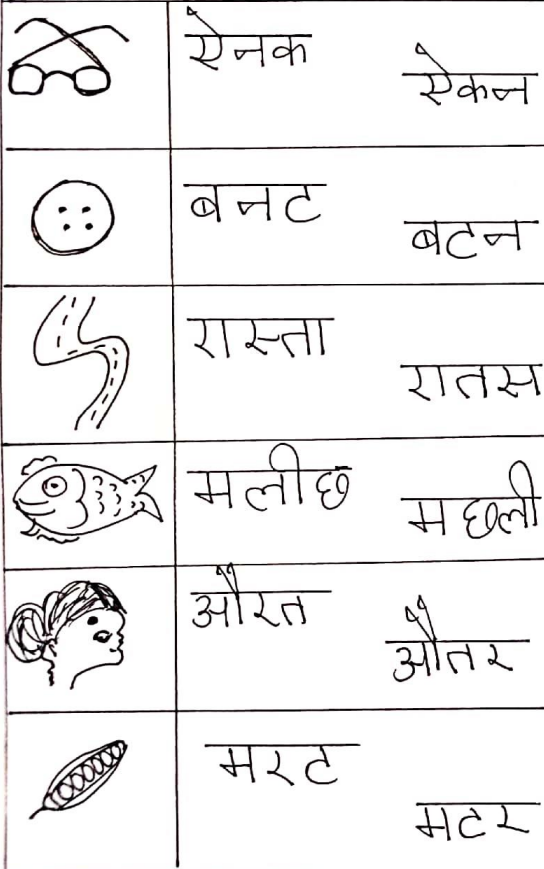 ऐनक
ऐकन
बनट
बटन
रास्ता
रातस
मलीछ
मछली
औरत
औतर
मरट
मटर